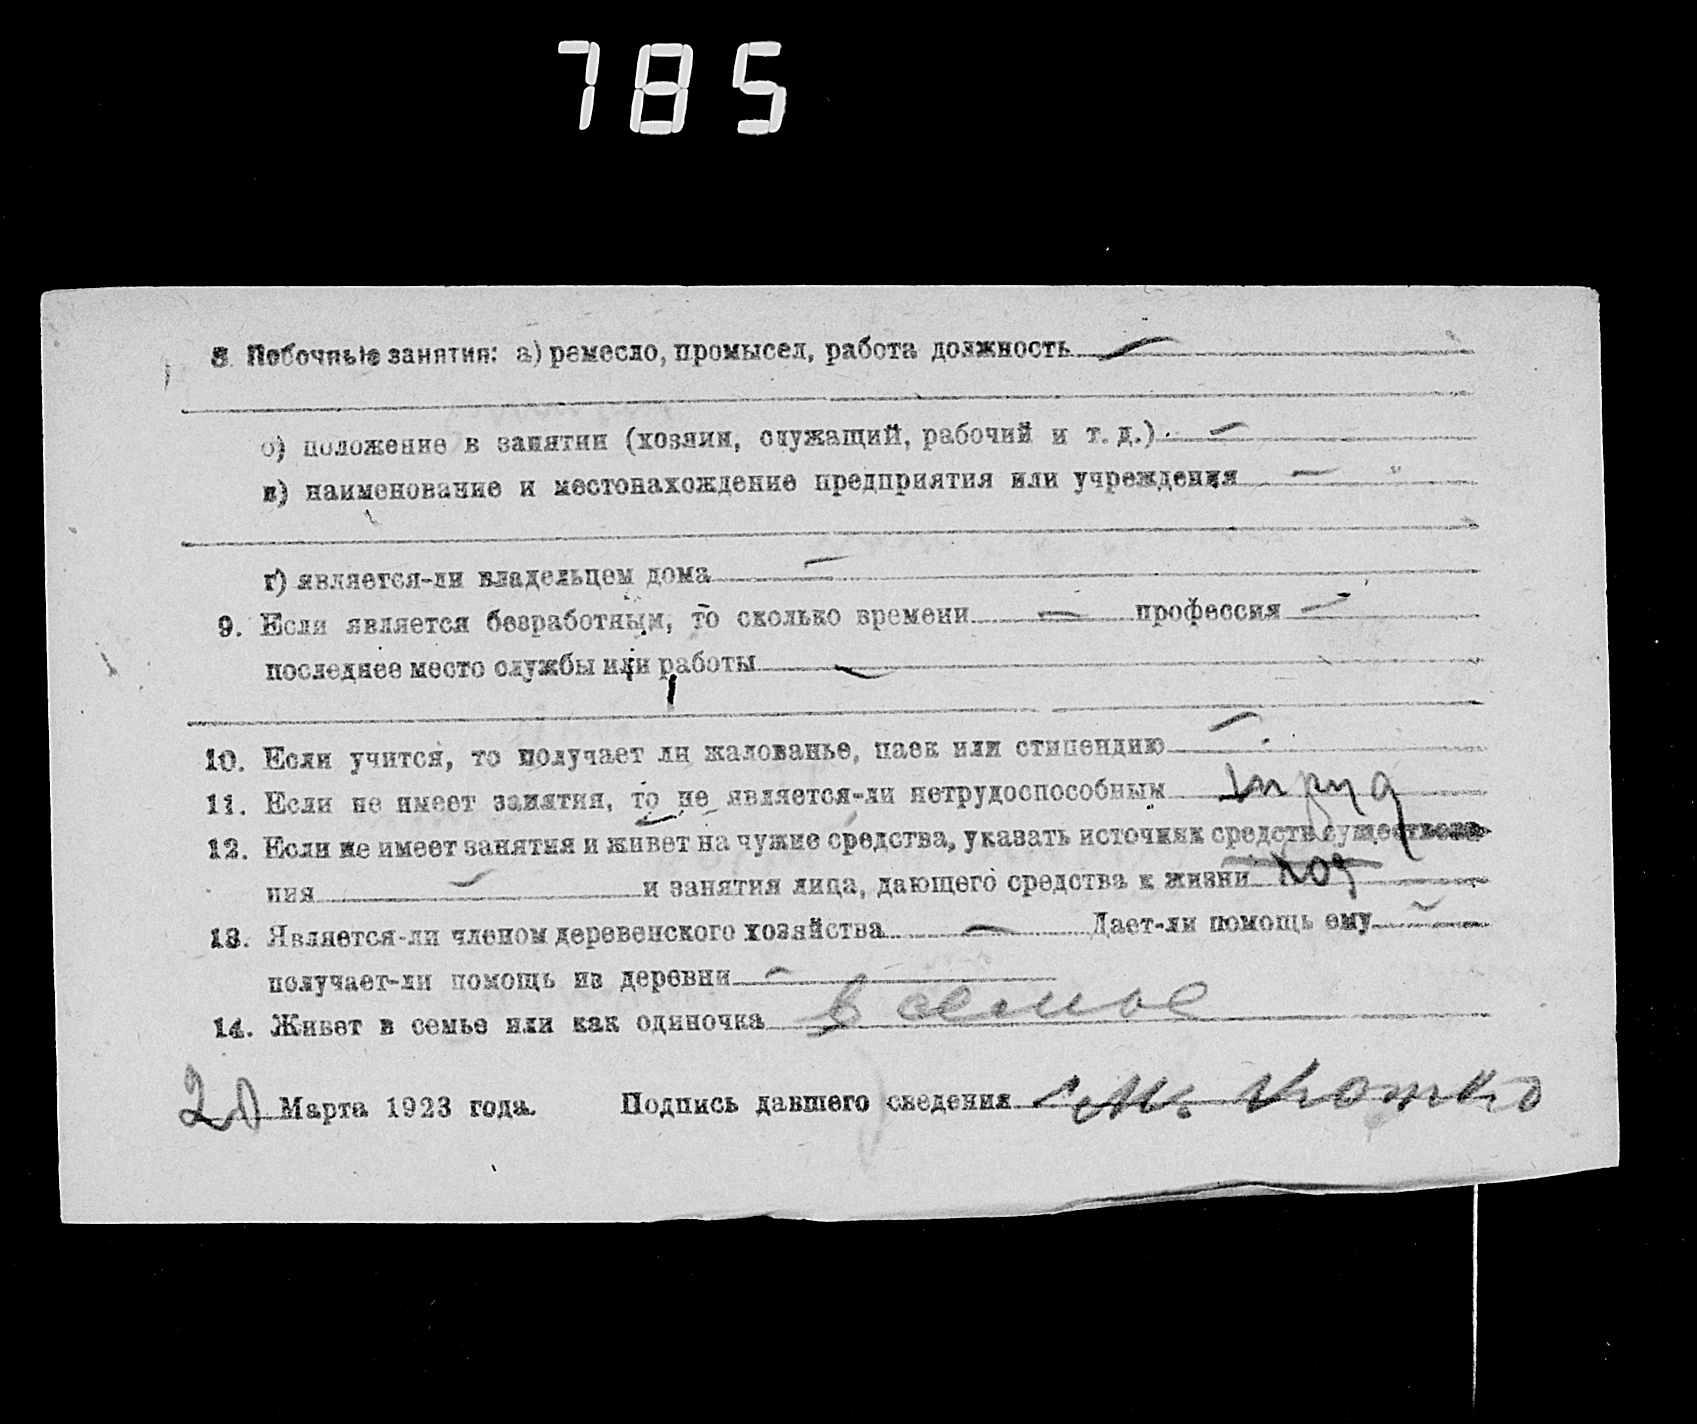 785
8. Побочные занятия: а) ремесло, промысел, работа должность —
б) положение в занятии (хозяин, служащий, рабочий и т. д.) —
в) наименование и местонахождение предприятия или учреждения — "
г) является-ли владельцем дома —
9. Если является безработным, то сколько времени — профессия —
последнее место службы или работы —
10. Если учится, то получает ли жалованье, паек или стипендию —
11. Если не имеет занятия, то не является-ли нетрудоспособным труд
12. Если не имеет занятия и живет на чужие средства, указать источник средств существова-
ния — и занятия лица, дающего средства к жизни
13. Является-ли членом деревенского хозяйства — Дает-ли помощь ему —
получает-ли помощь из деревни —
14. Живет в семье или как одиночка в семье
20 Марта 1923 года. Подпись давшего сведения Котко